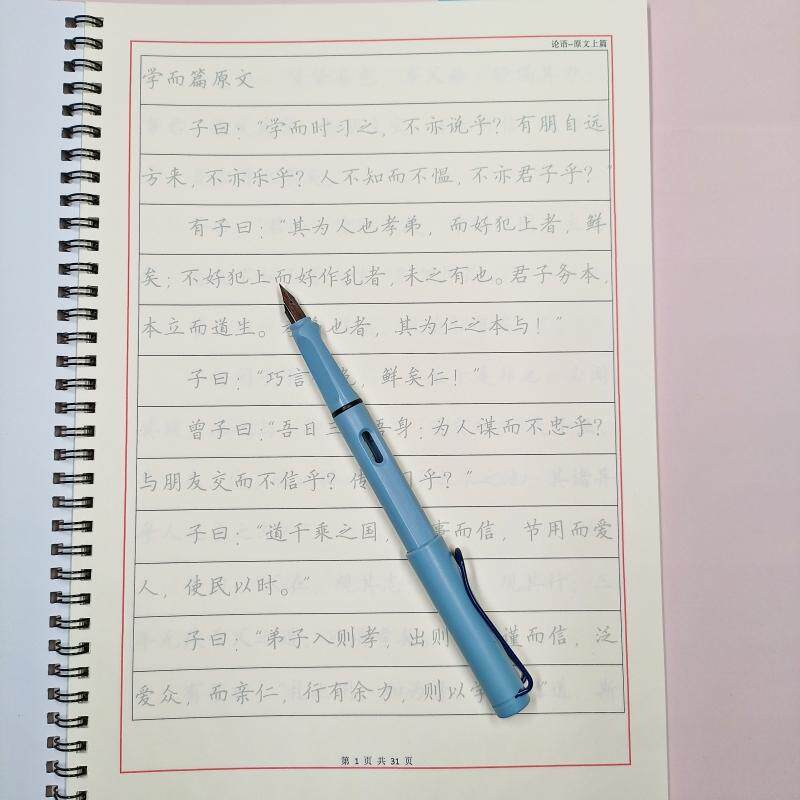 论语-原文上篇
学而篇原文
子曰：“学而时习之，不亦说乎？有朋自远
方来，不亦乐乎？人不知而不愠，不亦君子乎？”
有子曰：“其为人也孝弟，而好犯上者，鲜
矣；不好犯上而好作乱者，未之有也。君子务本，
本立而道生。也者，其为仁之本与！”
子曰：“巧言，鲜矣仁！”
曾子曰：“吾日三吾身：为人谋而不忠乎？
与朋友交而不信乎？传乎？”
子曰：“道千乘之国，事而信，节用而爱
人，使民以时。”
子曰：“弟子入则孝，出则谨而信，泛
爱众，而亲仁，行有余力，则以学”
第 1 页 共 31 页